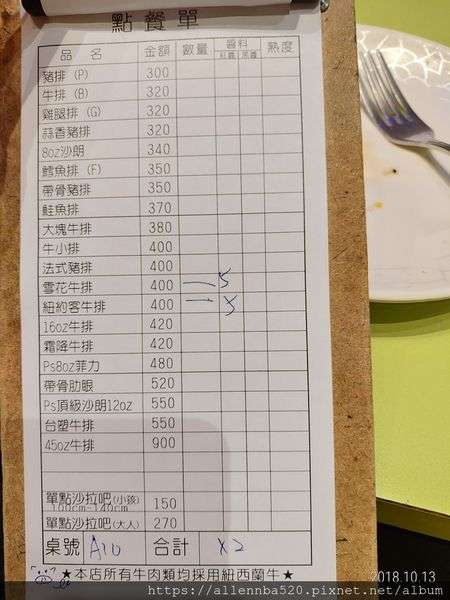 點餐單
品 名 金額 數量 醬料 熟度
紅醬 黑醬
豬排 (P) 300
牛排 (B) 320
雞腿排 (G) 320
蒜香豬排 320
8oz沙朗 340
鱈魚排 (F) 350
帶骨豬排 350
鮭魚排 370
大塊牛排 380
牛小排 400
法式豬排 400
雪花牛排 400 一 5
紐約客牛排 400 一 5
16oz牛排 420
霜降牛排 420
Ps8oz菲力 480
帶骨肋眼 520
Ps頂級沙朗12oz 550
台塑牛排 550
45oz牛排 900
單點沙拉吧(小孩) 150
100cm-140cm
單點沙拉吧(大人) 270
桌號 A10 合計 x2
★本店所有牛肉類均採用紐西蘭牛★
2018.10.13
https://allennba520.pixnet.net/album